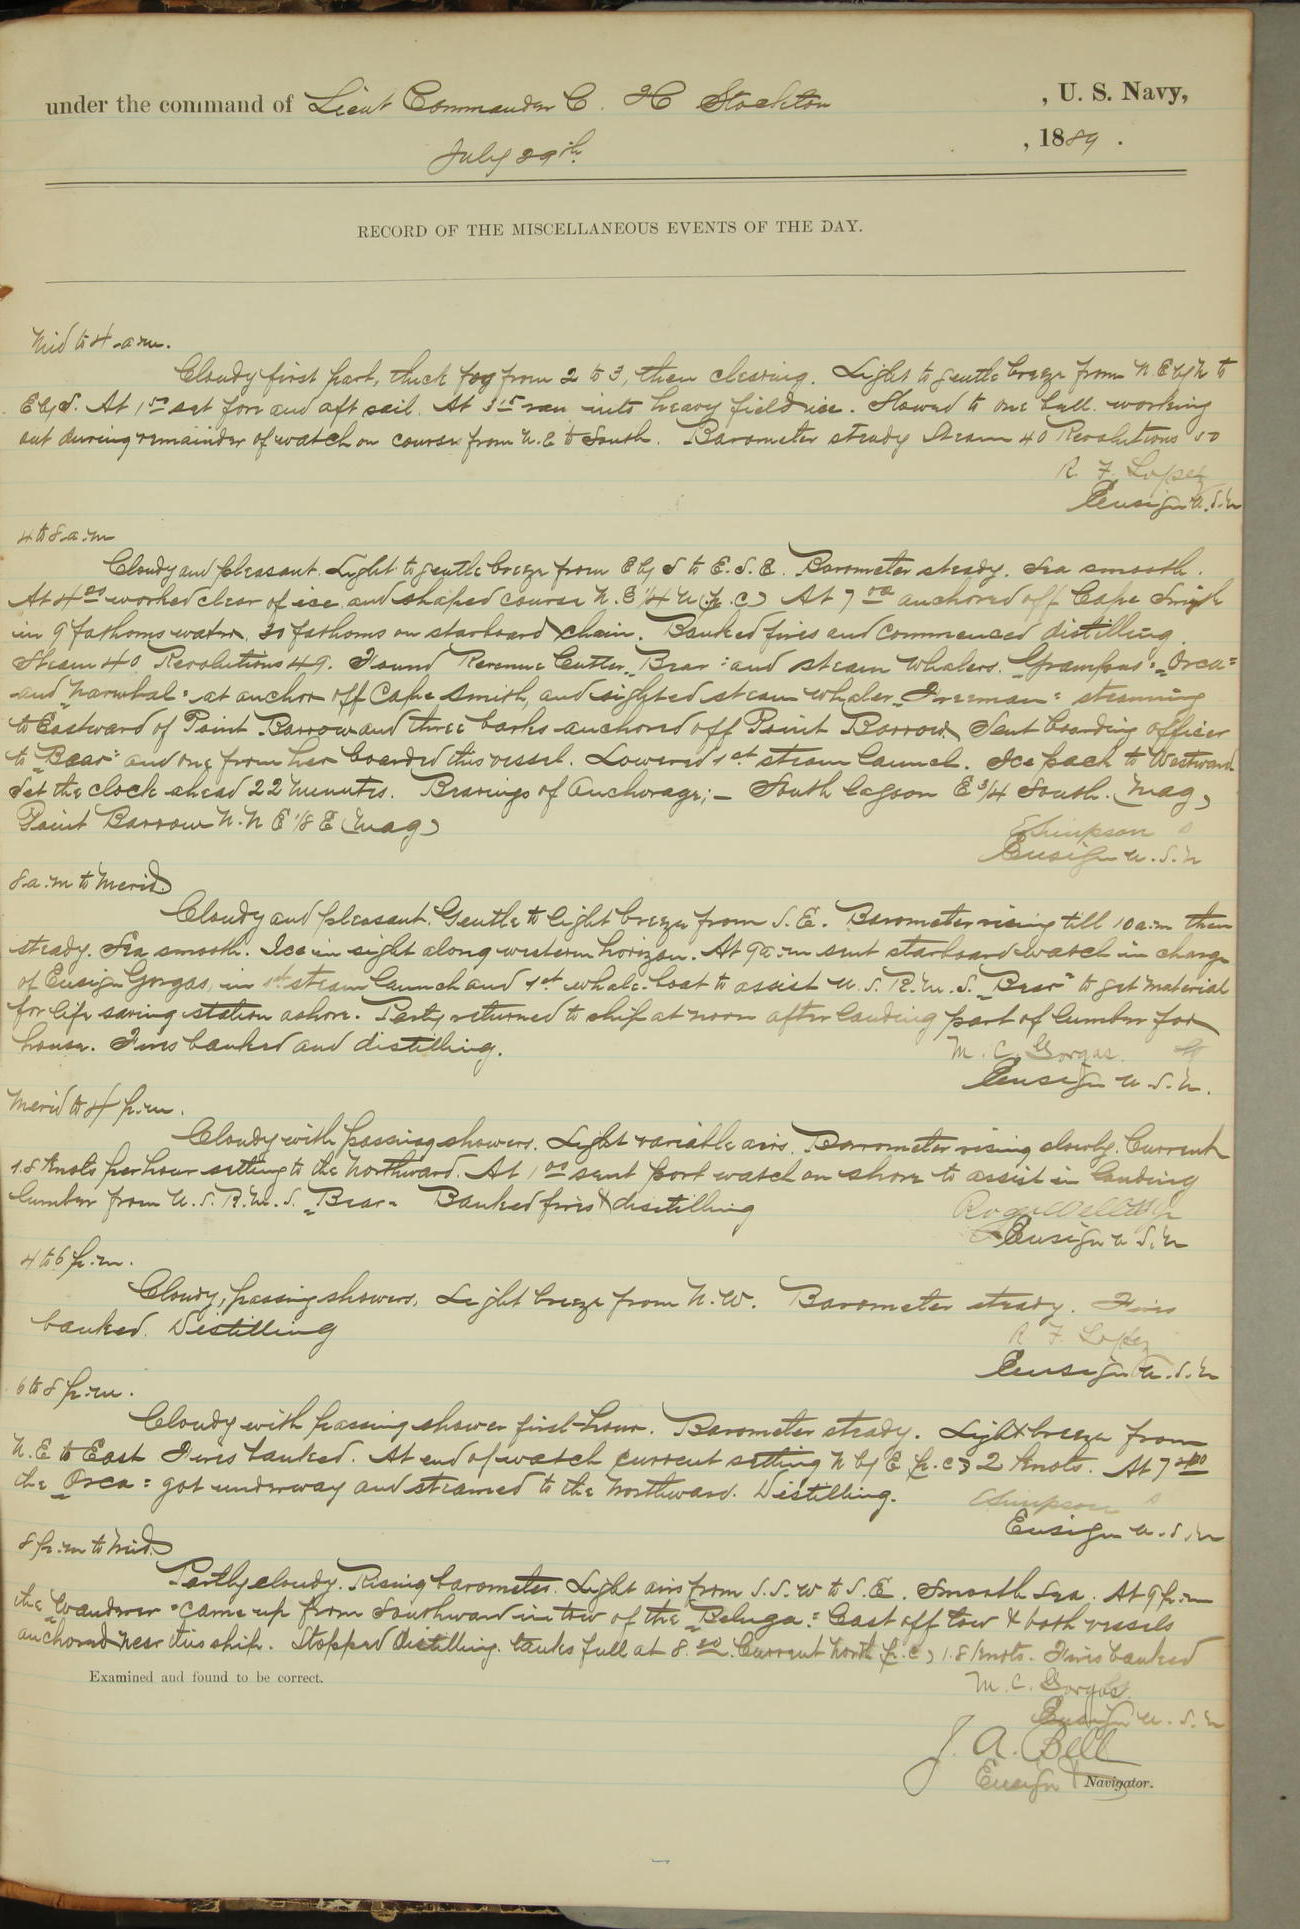 under the command of Lieut Commander C. H Stockton , U. S. Navy,
July 29th , 1889 .
RECORD OF THE MISCELLANEOUS EVENTS OF THE DAY.
Mid to 4 a.m.
Cloudy first part, thick fog from 2 to 3, then clearing. Light to gentle breeze from N E by N to
E by S. At 1 50 set fore and aft sail. At 3 15 ran into heavy field ice. Slowed to one bell. working
out during remainder of watch on course from N.E to South. Barometer steady Steam 40 Revolutions 50
R. F. Lopez
Ensign U.S.N
4 to 8 a.m
Cloudy and pleasant. Light to gentle breeze from E by S to E.S.E. Barometer steady. Sea smooth.
At 4 20 worked clear of ice and shaped course N.E 1/4 N (p.c) At 7 00 anchored off Cape Smyth
in 9 fathoms water, 30 fathoms on starboard chain. Banked fires and commenced distilling.
Steam 40 Revolutions 49. Found Revenue Cutter "Bear" and steam whalers "Grampus" "Orca"
and "Narwhal" at anchor off Cape Smith, and sighted steam whaler "Freeman" steaming
to Eastward of Point Barrow and three barks anchored off Point Barrow. Sent boarding officer
to "Bear" and one from her boarded this vessel. Lowered 1st steam launch. Ice pack to Westward
Set the clock ahead 22 minutes. Bearings of Anchorage; — South lagoon E 3/4 South. (mag)
Point Barrow N.N E 1/8 E (mag)
E Simpson
Ensign U.S.N
8 a.m to Merid.
Cloudy and pleasant. Gentle to light breeze from S.E. Barometer rising till 10 a.m then
steady. Sea smooth. Ice in sight along western horizon. At 9 a.m sent starboard watch in charge
of Ensign Gorgas, in 1st steam launch and 1st whale boat to assist U.S.R.M.S. "Bear" to get material
for life saving station ashore. Party returned to ship at noon after landing part of lumber for
house. Fires banked and distilling.
M. C. Gorgas.
Ensign U.S.N.
Merid to 4 p.m.
Cloudy with passing showers. Light variable airs. Barometer rising slowly. Current
1.8 knots per hour setting to the Northward. At 1 00 sent port watch on shore to assist in landing
lumber from U.S.R.M.S. "Bear" Banked fires & distilling
Roger Welles Jr
Ensign U.S.N
4 to 6 p.m.
Cloudy, passing showers, Light breeze from N.W. Barometer steady. Fires
banked. Distilling
R F. Lopez
Ensign U.S.N
6 to 8 p.m.
Cloudy with passing shower first hour. Barometer steady. Light breeze from
N.E to East Fires banked. At end of watch current setting N by E (p.c) 2 knots. At 7
the "Orca" got underway and steamed to the Northward. Distilling.
E Simpson
Ensign U.S.N
8 p.m to Mid.
Partly cloudy. Rising barometer. Light airs from S.S.W to S.E. Smooth Sea. At 9 p.m
the "Wanderer" came up from Southward in tow of the "Beluga." Cast off tow & both vessels
anchored near this ship. Stopped distilling. tanks full at 8. Current North (p.c) 1.8 knots. Fires banked
M. C. Gorgas
Ensign U.S.N
Examined and found to be correct.
J. A. Bell
Ensign & Navigator.